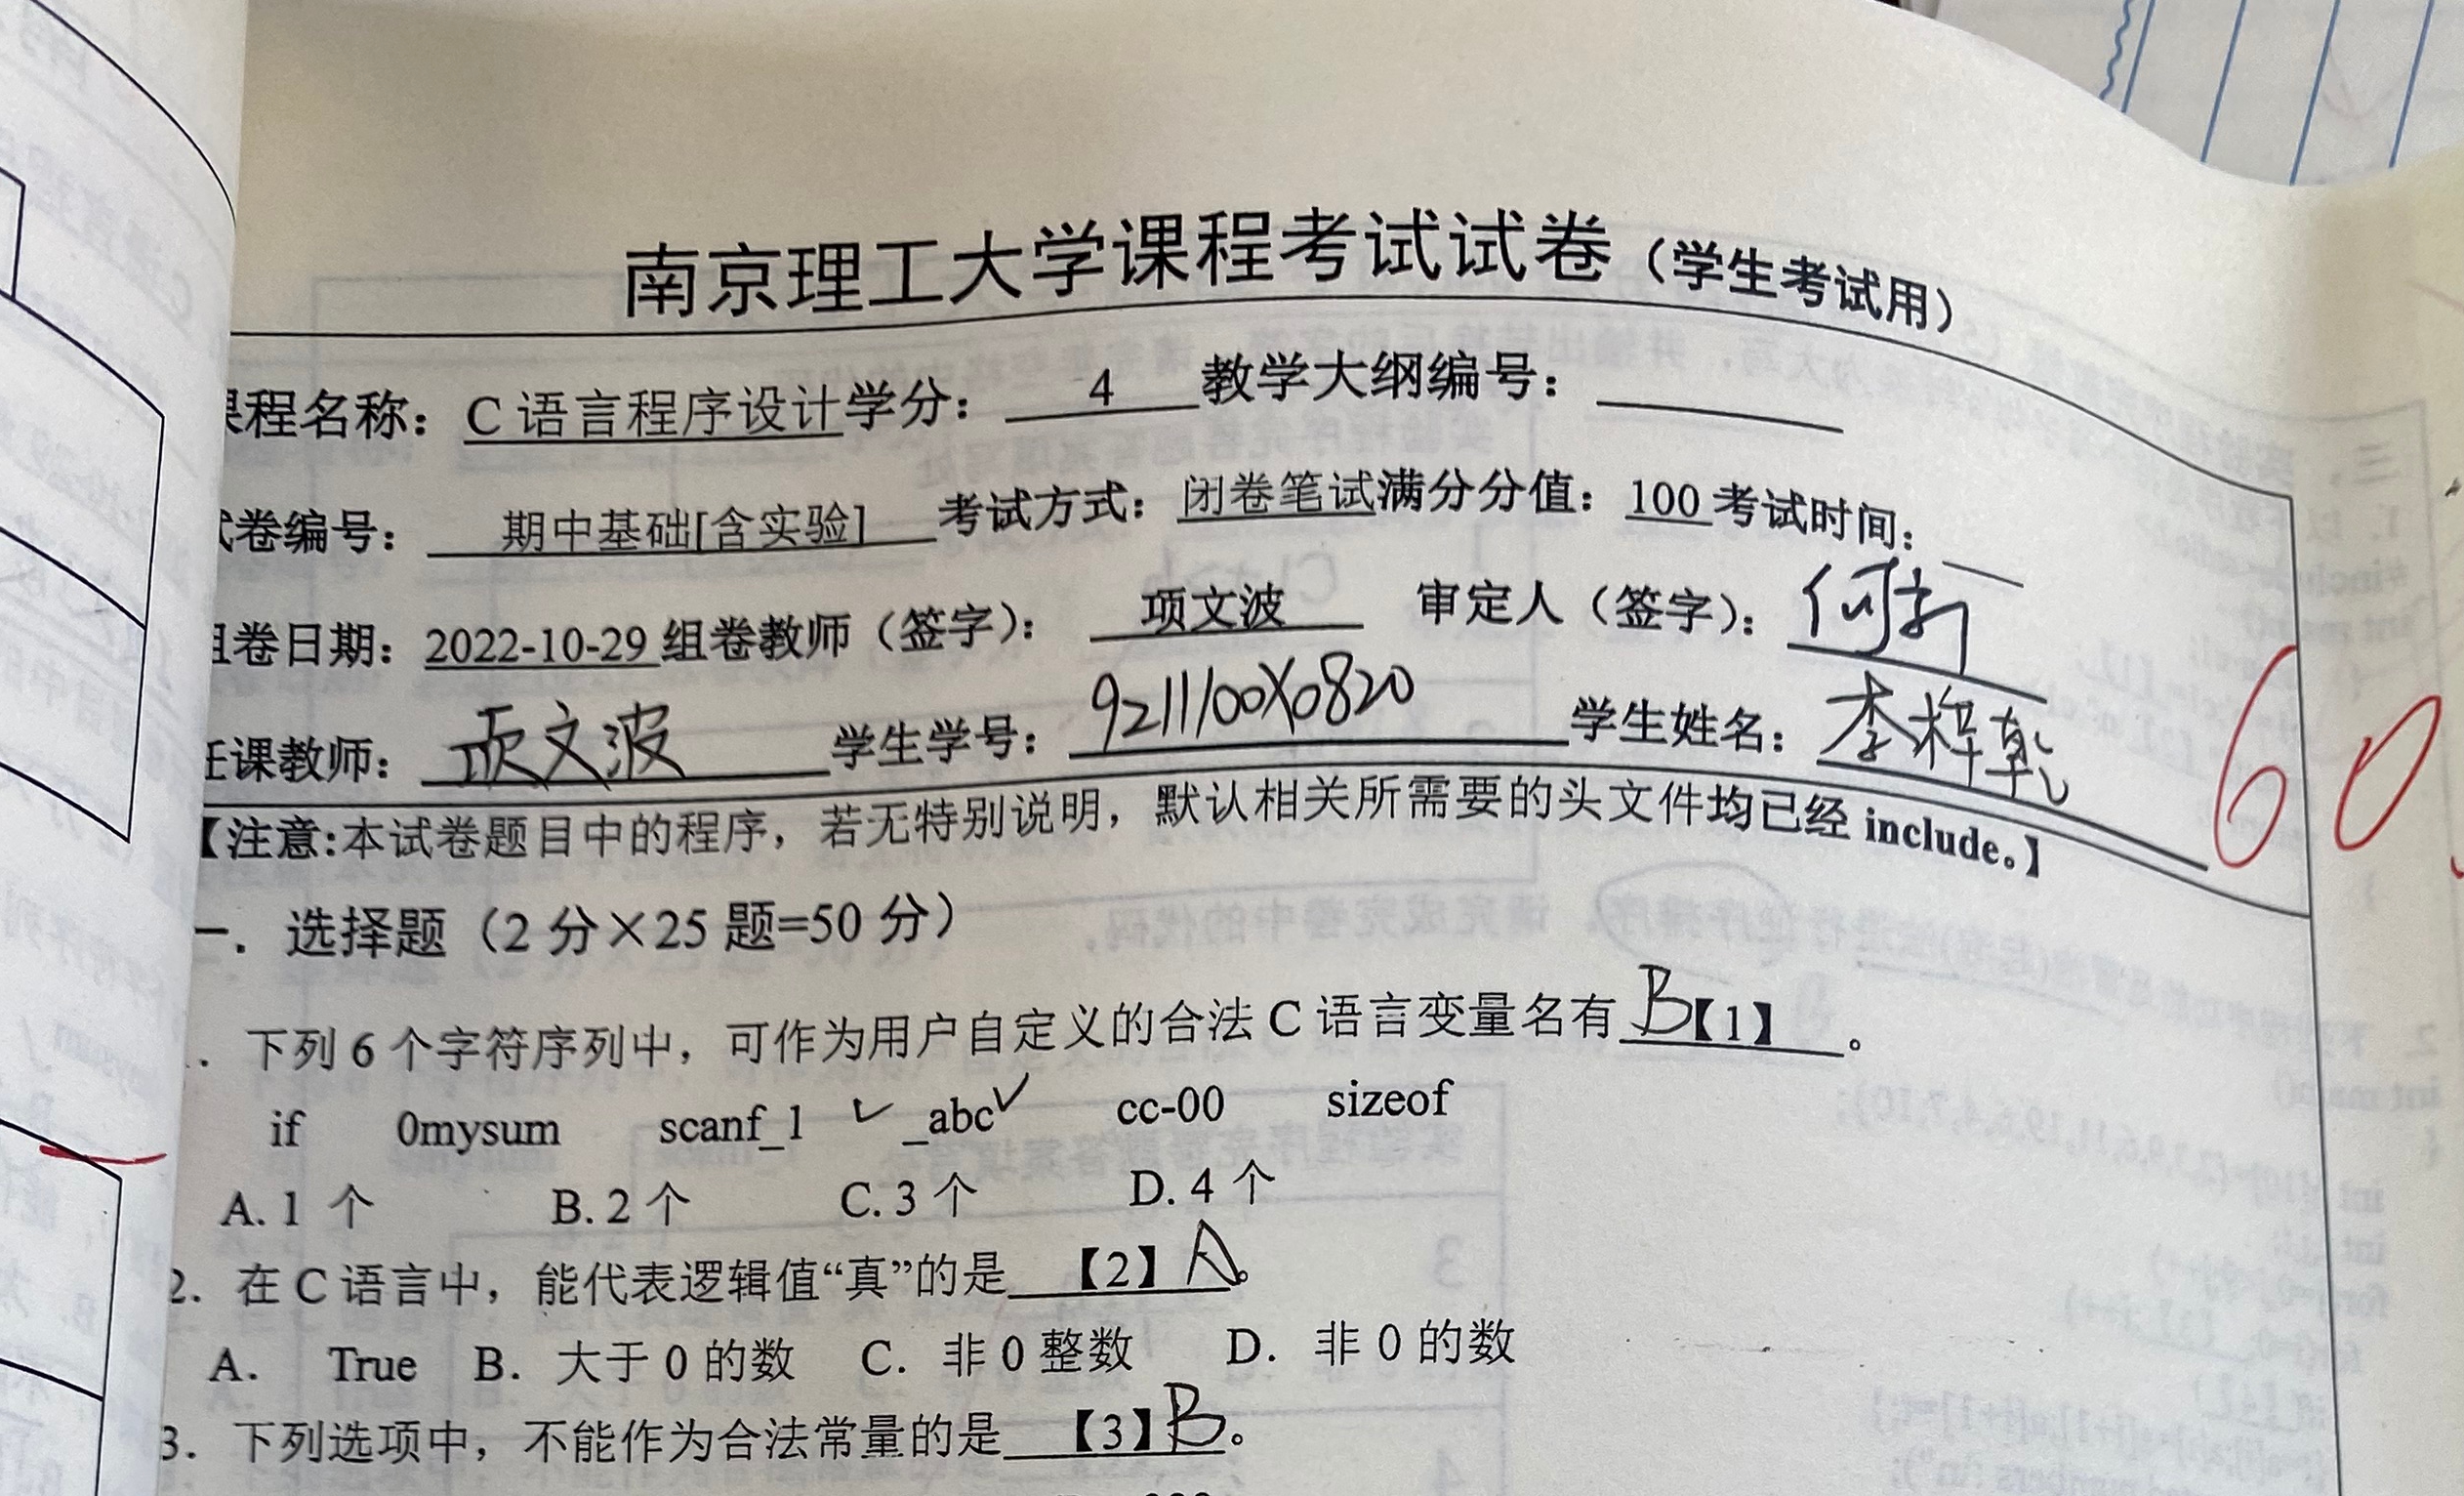 南京理工大学课程考试试卷（学生考试用）
课程名称：C 语言程序设计学分：4 教学大纲编号：
试卷编号：期中基础[含实验] 考试方式：闭卷笔试满分分值：100 考试时间：
组卷日期：2022-10-29 组卷教师（签字）：项文波 审定人（签字）：何新
任课教师：项文波 学生学号：9211100X0820 学生姓名：李梓乾
60
【注意:本试卷题目中的程序，若无特别说明，默认相关所需要的头文件均已经 include。】
一．选择题（2 分×25 题=50 分）
．下列 6 个字符序列中，可作为用户自定义的合法 C 语言变量名有 B【1】。
if 0mysum scanf_1 ✓ _abc ✓ cc-00 sizeof
A. 1 个 B. 2 个 C. 3 个 D. 4 个
2．在 C 语言中，能代表逻辑值“真”的是【2】A。
A． True B．大于 0 的数 C．非 0 整数 D．非 0 的数
3．下列选项中，不能作为合法常量的是【3】B。